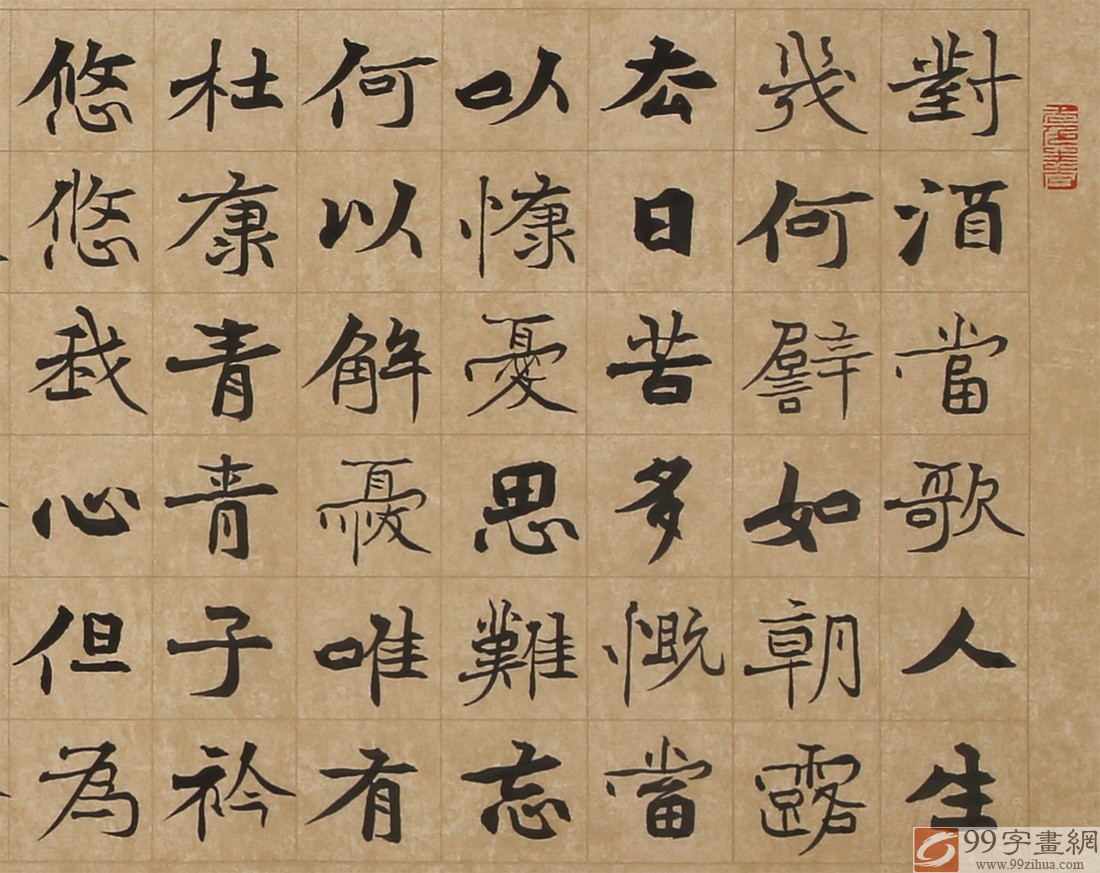 對酒當歌人生
幾何譬如朝露
去日苦多慨當
以慷憂思難忘
何以解憂唯有
杜康青青子衿
悠悠我心但為
99字畫網
www.99zihua.com